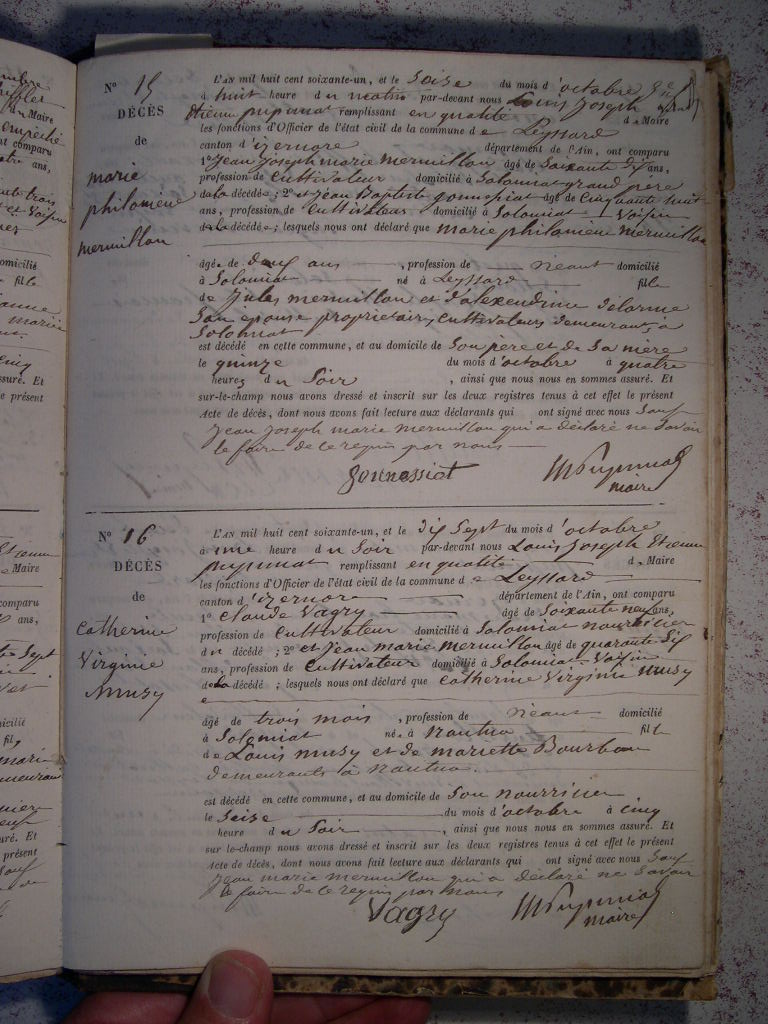 N° 15
DÉCÈS
de
marie
philomène
mermillon
L'AN mil huit cent soixante-un, et le seise du mois d'octobre
à huit heure du matin par-devant nous Louis Joseph
Etienne pupunat remplissant en qualité de Maire
les fonctions d'Officier de l'état civil de la commune de Leyssard
canton d'izernore département de l'Ain, ont comparu
1° Jean Joseph marie mermillon âgé de soixante dix ans,
profession de Cultivateur domicilié à Solomiat grand père
de la décédée; 2° et Jean Baptiste gounessiat âgé de Cinquante huit
ans, profession de Cultivateur domicilié à Solomiat Voisin
de la décédée; lesquels nous ont déclaré que marie philomène mermillon
âgée de deux ans, profession de Néant domicilié
à Solomiat né à Leyssard fille
de Jules mermillon et d'alexendrine delorme
son épouse proprietaires Cultivateurs demeurants à
Solomiat
est décédé en cette commune, et au domicile de son père et de sa mère
le quinze du mois d'octobre à quatre
heures du soir, ainsi que nous nous en sommes assuré. Et
sur-le-champ nous avons dressé et inscrit sur les deux registres tenus à cet effet le présent
Acte de décès, dont nous avons fait lecture aux déclarants qui ont signé avec nous sauf
Jean Joseph marie mermillon qui a déclaré ne savoir
le faire de ce requis par nous
Gounessiat
Pupunat
maire
N° 16
DÉCÈS
de
Catherine
Virginie
Musy
L'AN mil huit cent soixante-un, et le dix sept du mois d'octobre
à une heure du soir par-devant nous Louis Joseph Etienne
pupunat remplissant en qualité de Maire
les fonctions d'Officier de l'état civil de la commune de Leyssard
canton d'izernore département de l'Ain, ont comparu
1° Claude Vagry âgé de soixante neuf ans,
profession de Cultivateur domicilié à Solomiat nourricier
du décédé; 2° et Jean marie mermillon âgé de quarante six
ans, profession de Cultivateur domicilié à Solomiat Voisin
de la décédé; lesquels nous ont déclaré que Catherine Virginie musy
âgé de trois mois, profession de Néant domicilié
à Solomiat née à Nantua fille
de Louis musy et de mariette Bourbon
demeurants à Nantua.
est décédé en cette commune, et au domicile de son nourricier
le seise du mois d'octobre à cinq
heure du soir, ainsi que nous nous en sommes assuré. Et
sur-le-champ nous avons dressé et inscrit sur les deux registres tenus à cet effet le présent
Acte de décès, dont nous avons fait lecture aux déclarants qui ont signé avec nous sauf
Jean marie mermillon qui a déclaré ne savoir
le faire de ce requis par nous
Vagry
Pupunat
maire